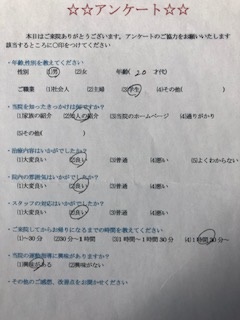 ☆☆アンケート☆☆
本日はご来院ありがとうございます。アンケートのご協力をお願いいたします
該当するところに〇印をつけてください
・年齢,性別を教えてください
性別 (1)男 (2)女 年齢( 20 才代)
ご職業 (1)社会人 (2)主婦 (3)学生 (4)その他( )
・当院を知ったきっかけは何ですか?
(1)家族の紹介 (2)知人の紹介 (3)当院のホームページ (4)通りがかり
(5)その他( )
・治療内容はいかがでしたか?
(1)大変良い (2)良い (3)普通 (4)悪い (5)よくわからない
・院内の雰囲気はいかがでしたか?
(1)大変良い (2)良い (3)普通 (4)悪い
・スタッフの対応はいかがでしたか?
(1)大変良い (2)良い (3)普通 (4)悪い
・ご来院してからお帰りになるまでの時間を教えてください
(1)〜30分 (2)30分〜1時間 (3)1時間〜1時間30分 (4)1時間30分〜
・当院の運動指導に興味がありますか?
(1)興味がある (2)興味がない
・その他のご感想、改善点をお聞かせください